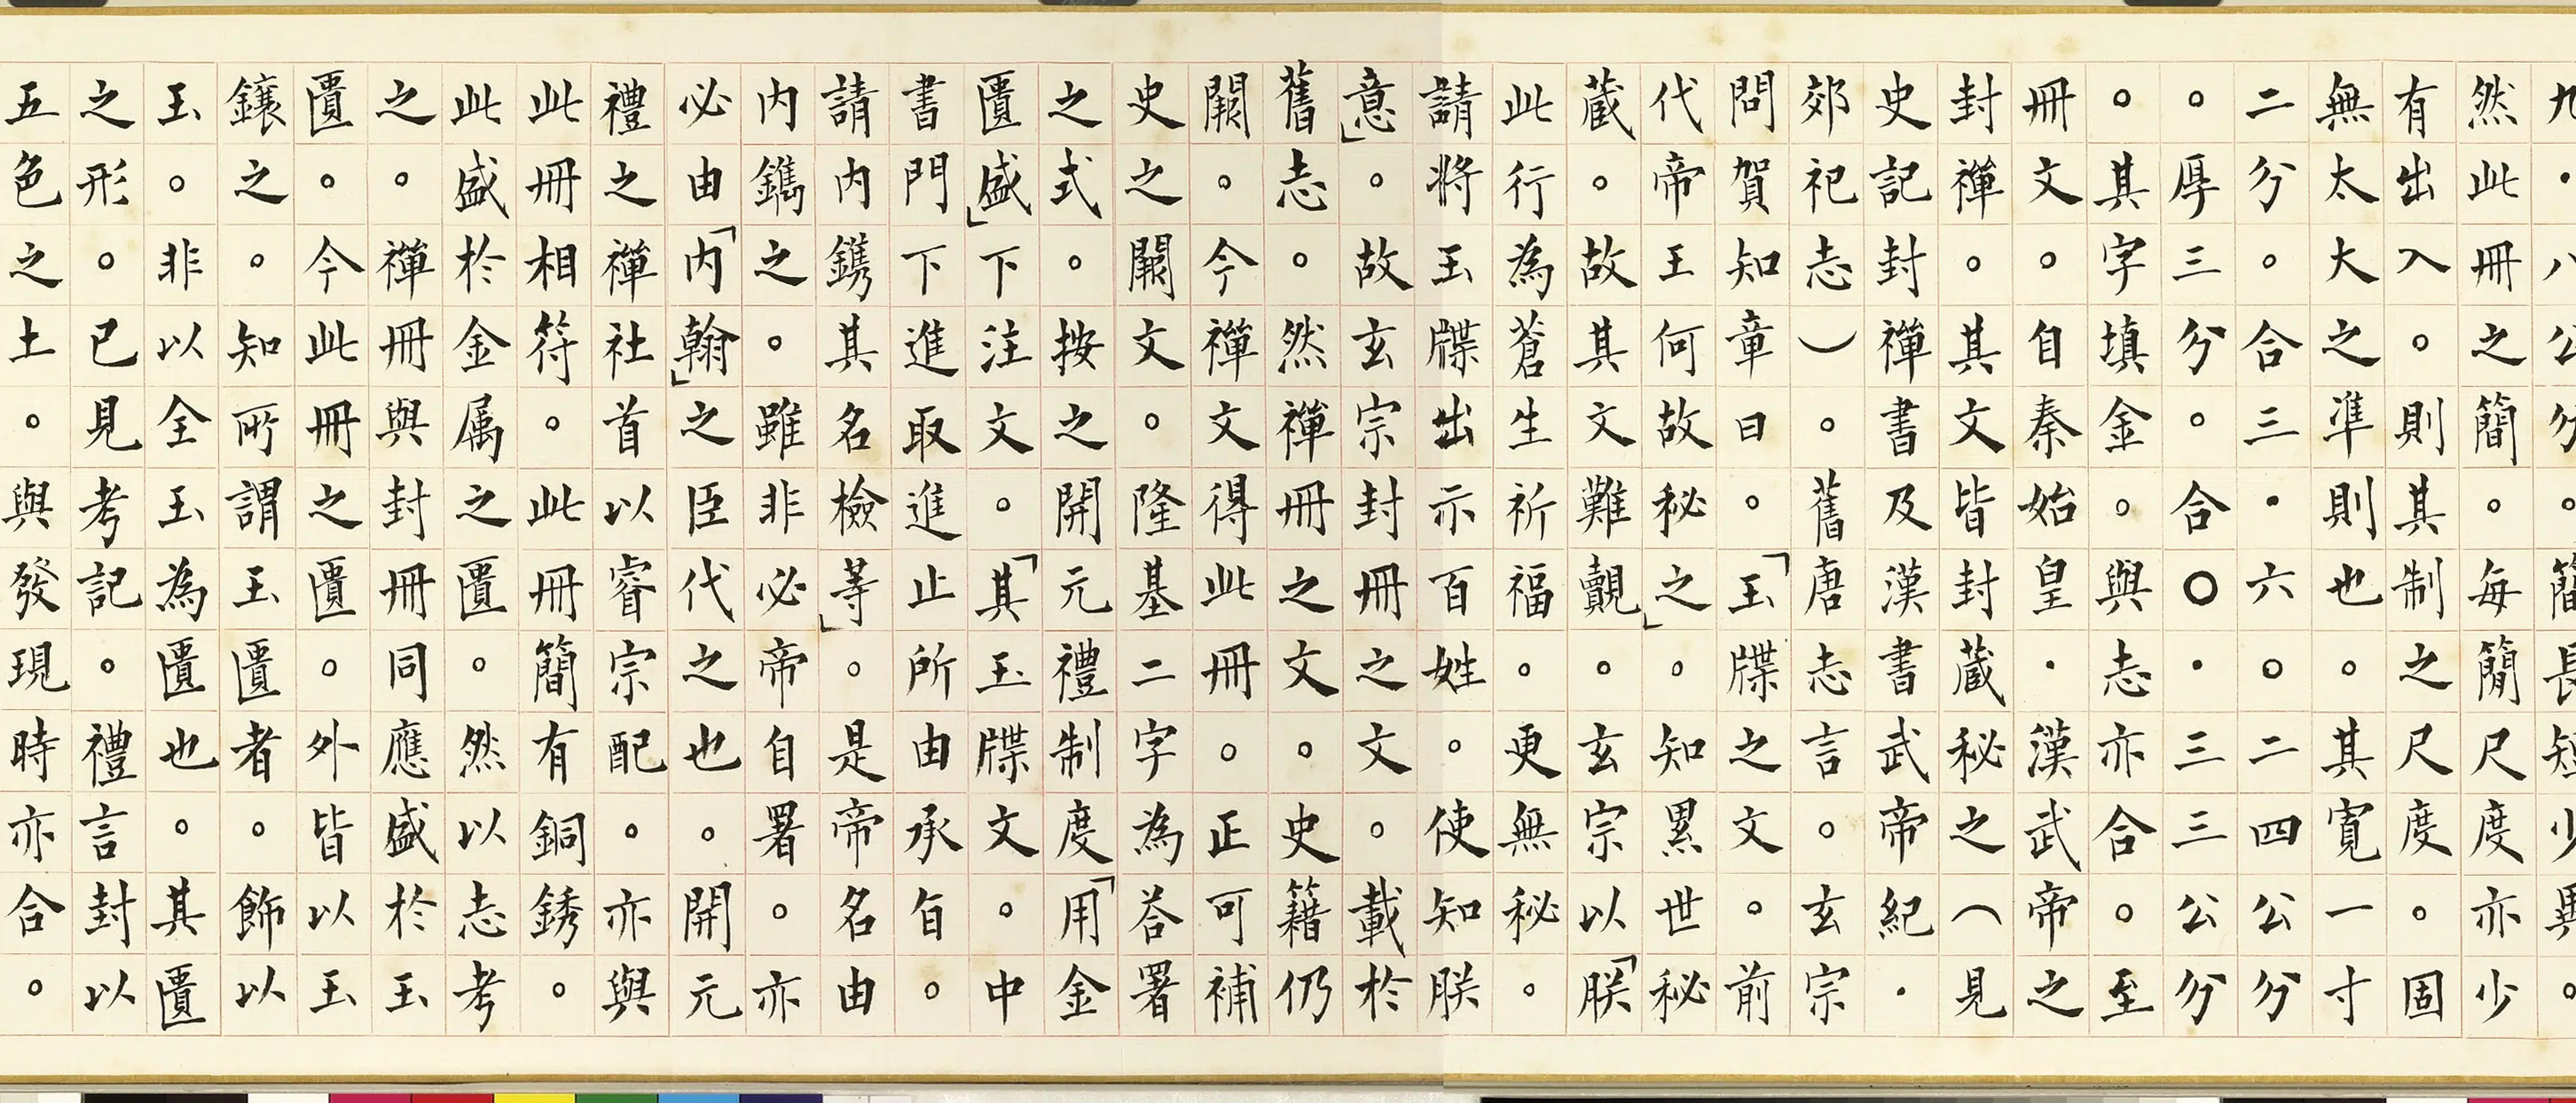 九·八公分。簡長短少異。
然此冊之簡。每簡尺度亦少
有出入。則其制之尺度。固
無太大之準則也。其寬一寸
二分。合三·六。二四公分
。厚三分。合〇·三三公分
。其字填金。與志亦合。至
冊文。自秦始皇·漢武帝之
封禪。其文皆封藏秘之（見
史記封禪書及漢書武帝紀·
郊祀志）。舊唐志言。玄宗
問賀知章曰。「玉牒之文。前
代帝王何故秘之」。知累世秘
藏。故其文難覿。玄宗以「朕
此行為蒼生祈福。更無秘。
請將玉牒出示百姓。使知朕
意」。故玄宗封冊之文。載於
舊志。然禪冊之文。史籍仍
闕。今禪文得此冊。正可補
史之闕文。隆基二字為荅署
之式。按之開元禮制度「用金
匱盛」下注文。「其玉牒文。中
書門下進取進止所由承旨。
請内鐫其名檢等」。是帝名由
内鐫之。雖非必帝自署。亦
必由「内翰」之臣代之也。開元
禮之禪社首以睿宗配。亦與
此冊相符。此冊簡有銅銹。
此盛於金属之匱。然以志考
之。禪冊與封冊同應盛於玉
匱。今此冊之匱。外皆以玉
鑲之。知所謂玉匱者。飾以
玉。非以全玉為匱也。其匱
之形。已見考記。禮言封以
五色之土。與發現時亦合。